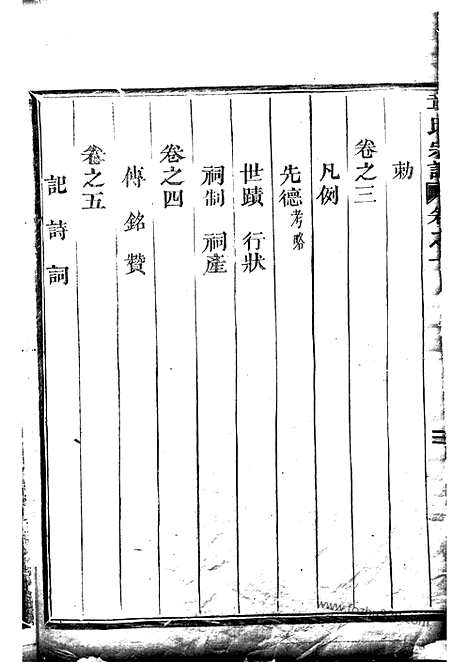 勅
卷之三
凡例
先德考略
世蹟 行狀
祠制 祠產
卷之四
傳 銘 贊
卷之五
記 詩 詞